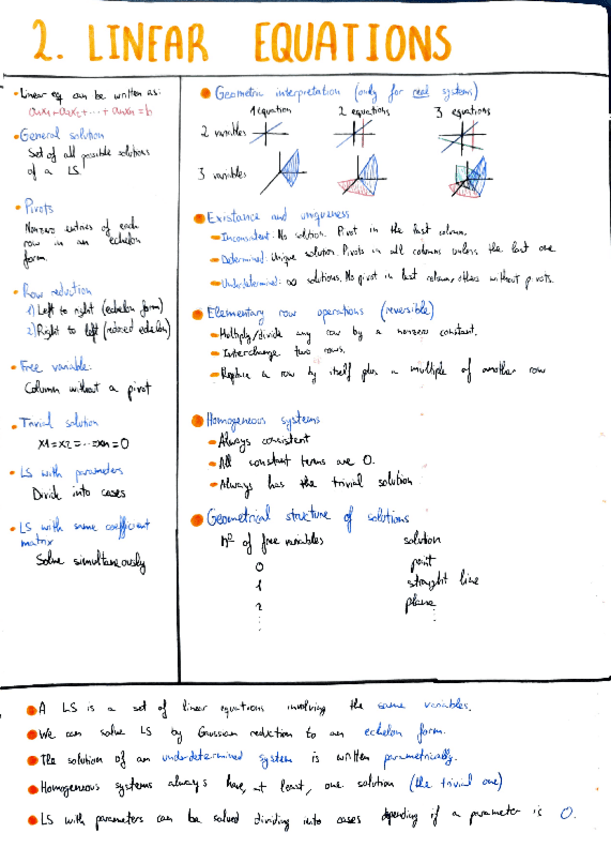 2. LINEAR EQUATIONS
• Linear eq can be written as:
a1x1+a2x2+...+anxn=b
• General solution
Set of all possible solutions
of a LS
• Pivots
Nonzero entries of each
row in an echelon
form.
• Row reduction
1) Left to right (echelon form)
2) Right to left (reduced echelon)
• Free variable:
Column without a pivot
• Trivial solution
x1=x2=...=xn=0
• LS with parameters
Divide into cases
• LS with same coefficient
matrix
Solve simultaneously
• Geometric interpretation (only for real systems)
1 equation 2 equations 3 equations
2 variables
3 variables
• Existance and uniqueness
- Inconsistent: No solution. Pivot in the last column.
- Determined: Unique solution. Pivots in all columns unless the last one
- Underdetermined: ∞ solutions. No pivot in last column, others without pivots.
• Elementary row operations (reversible)
- Multiply/divide any row by a nonzero constant.
- Interchange two rows.
- Replace a row by itself plus a multiple of another row
• Homogeneous systems
- Always consistent
- All constant terms are 0.
- Always has the trivial solution
• Geometrical structure of solutions
nº of free variables solution
0 point
1 straight line
2 plane
• A LS is a set of linear equations involving the same variables.
• We can solve LS by Gaussian reduction to an echelon form.
• The solution of an underdetermined system is written parametrically.
• Homogeneous systems always have, at least, one solution (the trivial one)
• LS with parameters can be solved dividing into cases depending if a parameter is 0.